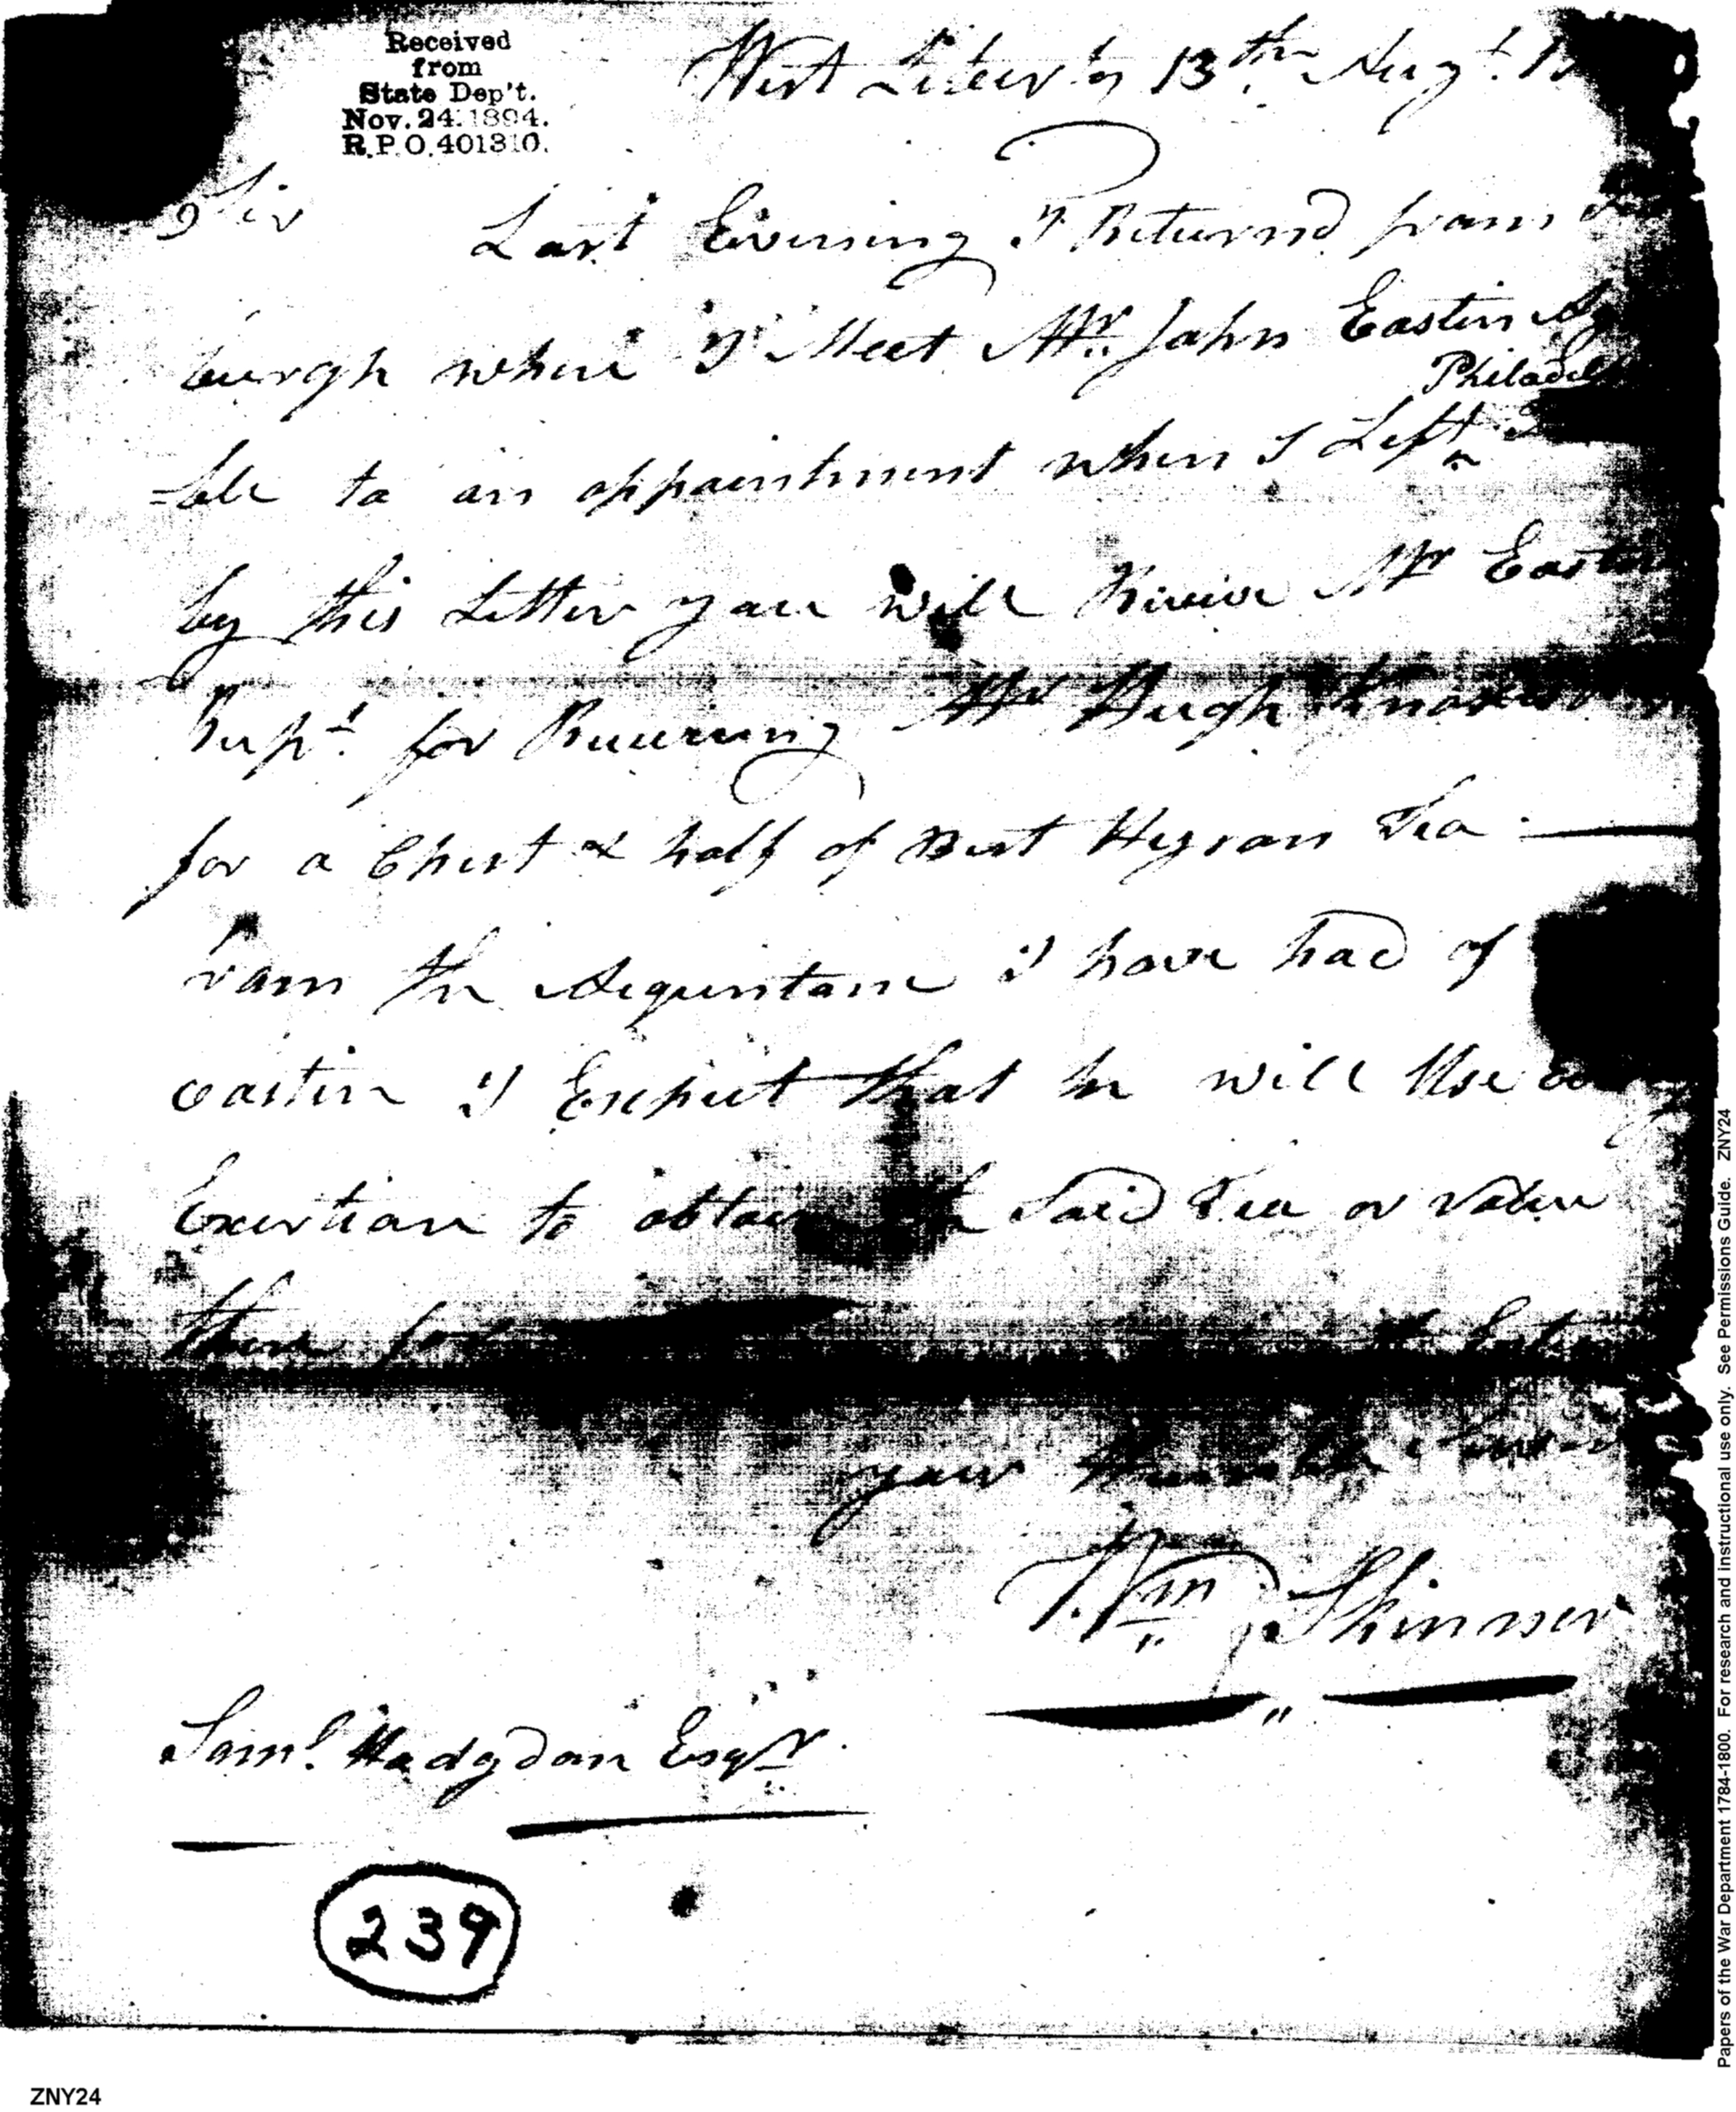 Received
from
State Dep't.
Nov. 24. 1894.
R.P.O. 401310.
West Liberty 13th Augt.
Sir Last Evening I Returnd from
burgh where I Meet Mr. John Eastin
Philadel
=ble to an appointment when I Left
by this Letter you will Receive Mr Eastin
Recpt. for Receiving Mr Hugh
for a Chest & half of Best Hyson Tea
from the Acquintance I have had of
Eastin I Expect that he will Use
Exertion to obtain the Said Tea or Value
there for
your Humble
Wm Skinner
Saml. Hodgdon Esqr.
239
ZNY24
Papers of the War Department 1784-1800. For research and instructional use only. See Permissions Guide. ZNY24